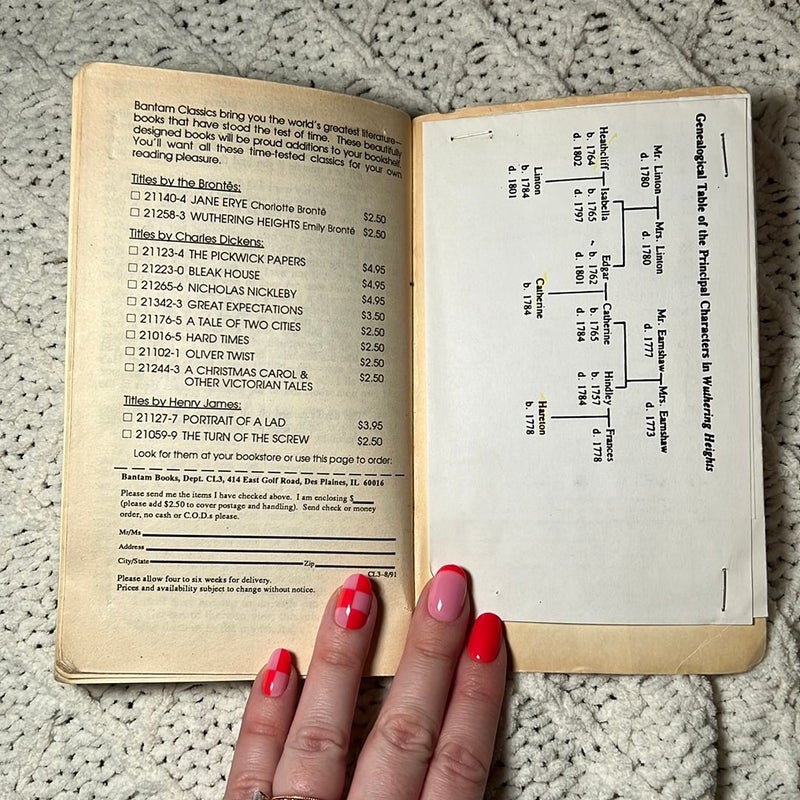 Bantam Classics bring you the world's greatest literature—
books that have stood the test of time. These beautifully
designed books will be proud additions to your bookshelf.
You'll want all these time-tested classics for your own
reading pleasure.
Titles by the Brontës:
☐ 21140-4 JANE ERYE Chorlotte Brontë $2.50
☐ 21258-3 WUTHERING HEIGHTS Emily Brontë $2.50
Titles by Charles Dickens:
☐ 21123-4 THE PICKWICK PAPERS $4.95
☐ 21223-0 BLEAK HOUSE $4.95
☐ 21265-6 NICHOLAS NICKLEBY $4.95
☐ 21342-3 GREAT EXPECTATIONS $3.50
☐ 21176-5 A TALE OF TWO CITIES $2.50
☐ 21016-5 HARD TIMES $2.50
☐ 21102-1 OLIVER TWIST $2.50
☐ 21244-3 A CHRISTMAS CAROL & $2.50
OTHER VICTORIAN TALES
Titles by Henry James:
☐ 21127-7 PORTRAIT OF A LAD $3.95
☐ 21059-9 THE TURN OF THE SCREW $2.50
Look for them at your bookstore or use this page to order:
Bantam Books, Dept. CL3, 414 East Golf Road, Des Plaines, IL 60016
Please send me the items I have checked above. I am enclosing $____
(please add $2.50 to cover postage and handling). Send check or money
order, no cash or C.O.D.s please.
Mr/Ms
Address
City/State Zip
CL3-8/91
Please allow four to six weeks for delivery.
Prices and availability subject to change without notice.
Genealogical Table of the Principal Characters in Wuthering Heights
Mr. Linton Mrs. Linton Mr. Earnshaw Mrs. Earnshaw
d. 1780 d. 1780 d. 1777 d. 1773
Heathcliff Isabella Edgar Catherine Hindley Frances
b. 1764 b. 1765 ~ b. 1762 b. 1765 b. 1757 d. 1778
d. 1802 d. 1797 d. 1801 d. 1784 d. 1784
Linton Catherine Hareton
b. 1784 b. 1784 b. 1778
d. 1801